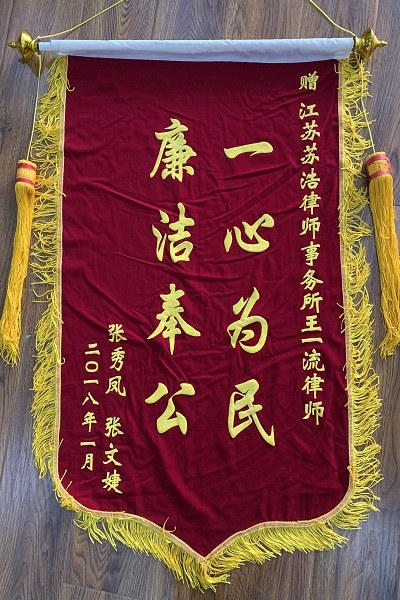 赠 江苏苏浩律师事务所王一流律师
一心为民
廉洁奉公
张秀凤 张文婕
二〇一八年一月